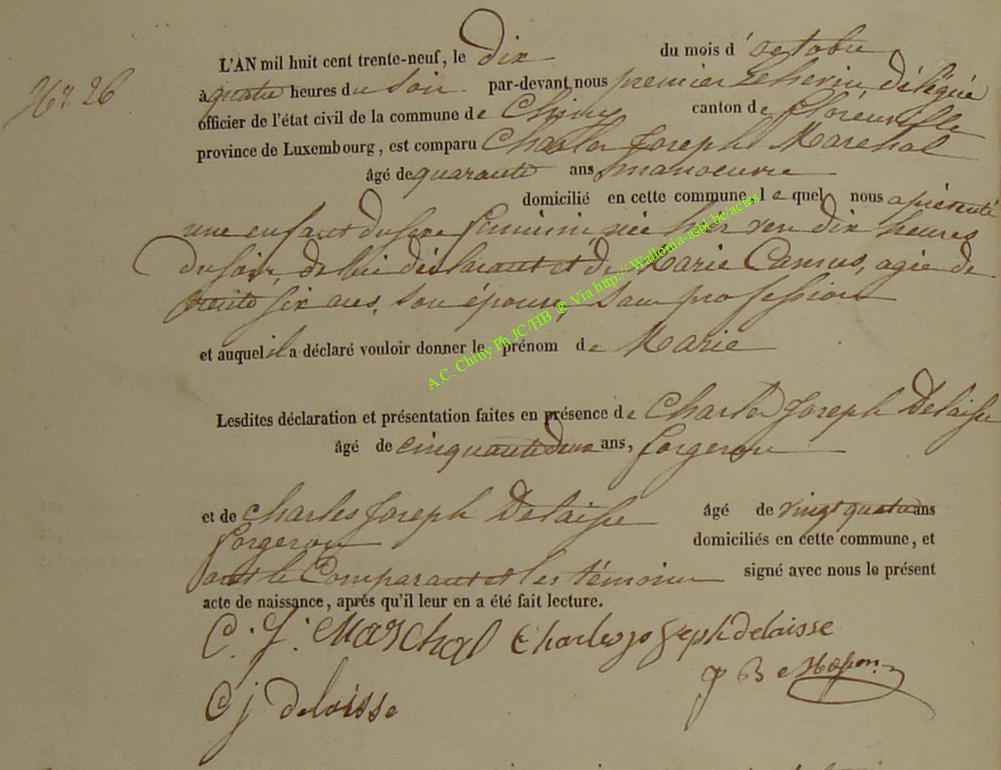 N.º 26
L'AN mil huit cent trente-neuf, le dix du mois d'octobre
à quatre heures du soir par-devant nous premier Echevin délégué
officier de l'état civil de la commune de Chiny canton de florenville
province de Luxembourg, est comparu Charles Joseph Marchal
âgé de quarante ans manoeuvre
domicilié en cette commune, lequel nous a présenté
une enfant du sexe féminin née hier vers dix heures
du soir, de lui déclarant et de Marie Camus, agée de
trente six ans, son épouse, sans profession
et auquel il a déclaré vouloir donner le prénom de Marie
Lesdites déclaration et présentation faites en présence de Charles Joseph Delaisse
âgé de cinquante deux ans, forgeron
et de Charles Joseph Delaisse âgé de vingt quatre ans
forgeron domiciliés en cette commune, et
ont le Comparant et les témoins signé avec nous le présent
acte de naissance, aprés qu'il leur en a été fait lecture.
C. J. Marchal Charles joseph delaisse
C j delaisse
A.C. Chiny Ph JC/HB @ Via http://Wallonia-asbl.be/actes